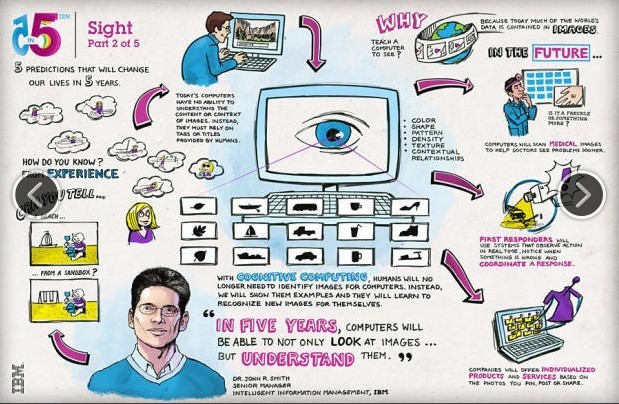 5 IN 5
IBM
Sight
Part 2 of 5
5 PREDICTIONS THAT WILL CHANGE
OUR LIVES IN 5 YEARS.
HOW DO YOU KNOW?
FROM EXPERIENCE
CAN YOU TELL...
BEACH...
... FROM A SANDBOX?
TODAY'S COMPUTERS
HAVE NO ABILITY TO
UNDERSTAND THE
CONTENT OR CONTEXT
OF IMAGES. INSTEAD,
THEY MUST RELY ON
TAGS OR TITLES
PROVIDED BY HUMANS.
• COLOR
• SHAPE
• PATTERN
• DENSITY
• TEXTURE
• CONTEXTUAL
RELATIONSHIPS
WHY
TEACH A
COMPUTER
TO SEE?
BECAUSE TODAY MUCH OF THE WORLD'S
DATA IS CONTAINED IN IMAGES.
IN THE FUTURE...
IS IT A FRECKLE
OR SOMETHING
MORE?
COMPUTERS WILL SCAN MEDICAL IMAGES
TO HELP DOCTORS SEE PROBLEMS SOONER.
FIRST RESPONDERS WILL
USE SYSTEMS THAT OBSERVE ACTION
IN REAL TIME, NOTICE WHEN
SOMETHING IS WRONG AND
COORDINATE A RESPONSE.
COMPANIES WILL OFFER INDIVIDUALIZED
PRODUCTS AND SERVICES BASED ON
THE PHOTOS YOU PIN, POST OR SHARE.
WITH COGNITIVE COMPUTING, HUMANS WILL NO
LONGER NEED TO IDENTIFY IMAGES FOR COMPUTERS. INSTEAD,
WE WILL SHOW THEM EXAMPLES AND THEY WILL LEARN TO
RECOGNIZE NEW IMAGES FOR THEMSELVES.
"IN FIVE YEARS, COMPUTERS WILL
BE ABLE TO NOT ONLY LOOK AT IMAGES ...
BUT UNDERSTAND THEM."
DR. JOHN R. SMITH
SENIOR MANAGER
INTELLIGENT INFORMATION MANAGEMENT, IBM
IBM